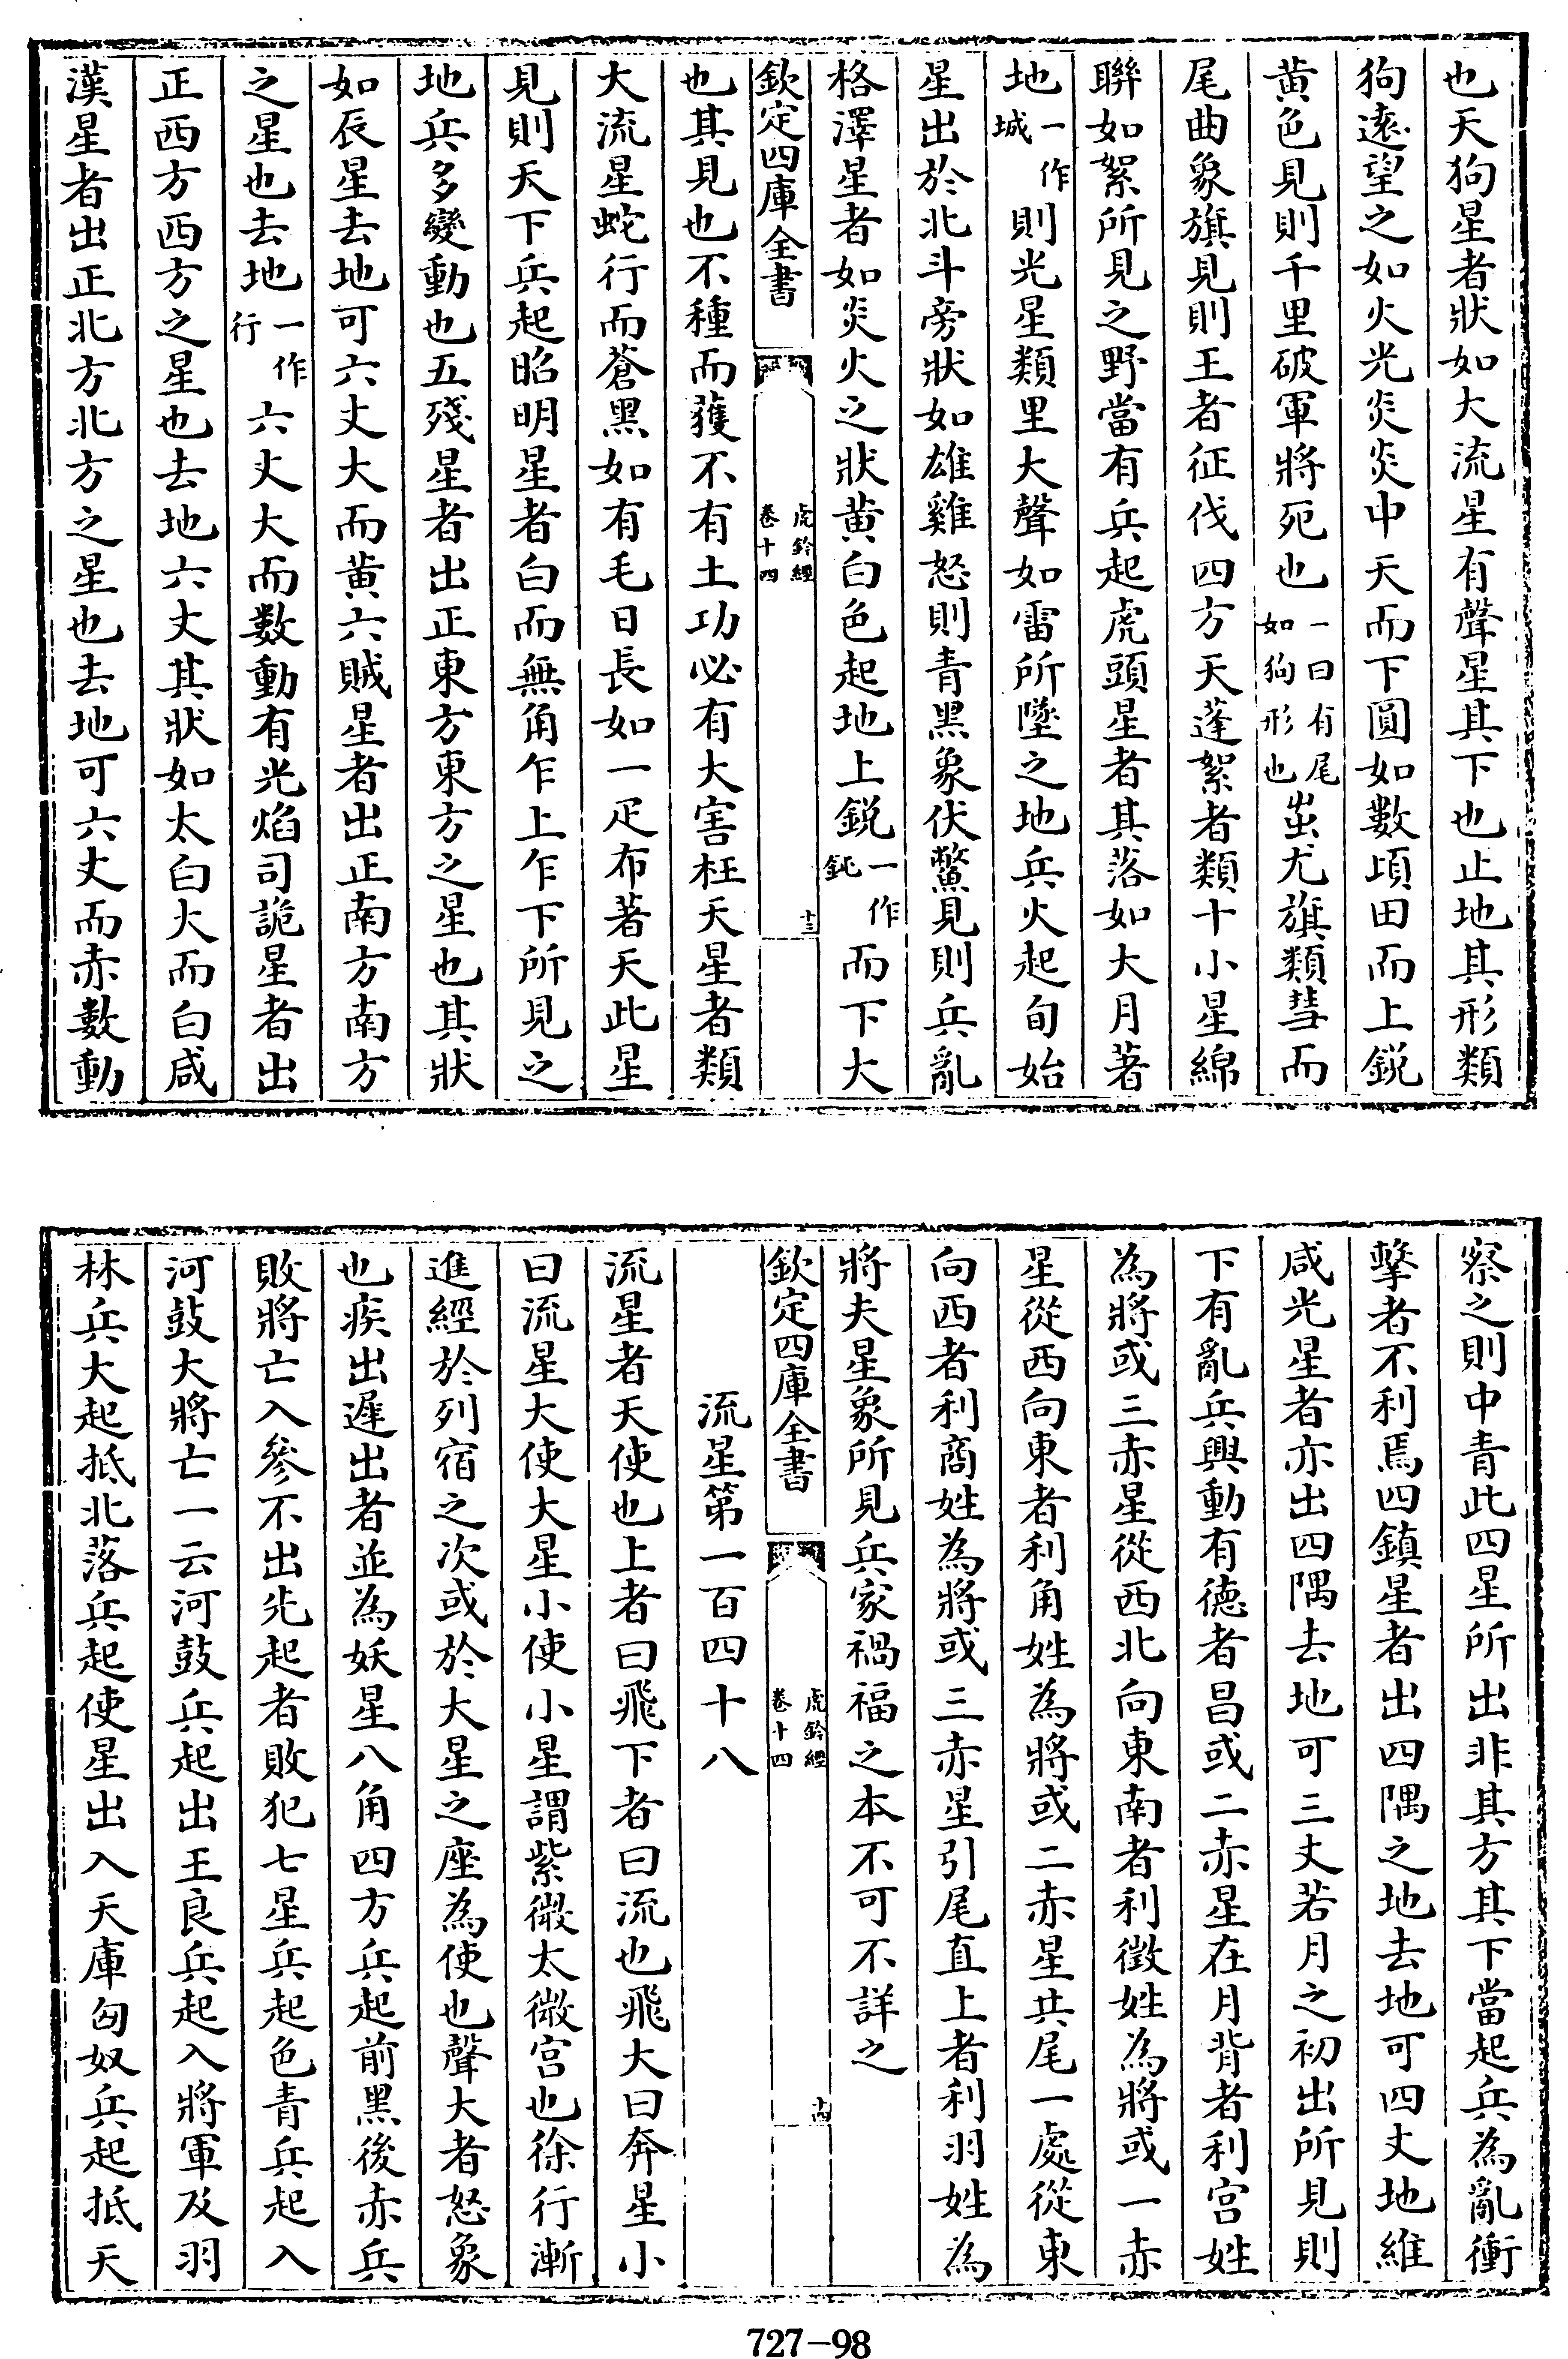 也天狗星者狀如大流星有聲星其下也止地其形類
狗遠望之如火光炎炎中天而下圓如數頃田而上鋭
黄色見則千里破軍將死也一曰有尾如狗形也蚩尤旗類彗而
尾曲象旗見則王者征伐四方天蓬絮者類十小星綿
聯如絮所見之野當有兵起虎頭星者其落如大月著
地一作城則光星類里大聲如雷所墜之地兵火起旬始
星出於北斗旁狀如雄雞怒則青黑象伏鱉見則兵亂
格澤星者如炎火之狀黄白色起地上鋭一作鈍而下大
欽定四庫全書
虎鈐經
卷十四
十三
也其見也不種而獲不有土功必有大害枉天星者類
大流星蛇行而蒼黑如有毛日長如一疋布著天此星
見則天下兵起昭明星者白而無角乍上乍下所見之
地兵多變動也五殘星者出正東方東方之星也其狀
如辰星去地可六丈大而黄六賊星者出正南方南方
之星也去地一作行六丈大而數動有光焰司詭星者出
正西方西方之星也去地六丈其狀如太白大而白咸
漢星者出正北方北方之星也去地可六丈而赤數動
察之則中青此四星所出非其方其下當起兵為亂衝
擊者不利焉四鎮星者出四隅之地去地可四丈地維
咸光星者亦出四隅去地可三丈若月之初出所見則
下有亂兵興動有德者昌或二赤星在月背者利宫姓
為將或三赤星從西北向東南者利徵姓為將或一赤
星從西向東者利角姓為將或二赤星共尾一處從東
向西者利商姓為將或三赤星引尾直上者利羽姓為
將夫星象所見兵家禍福之本不可不詳之
欽定四庫全書
虎鈐經
卷十四
十四
流星第一百四十八
流星者天使也上者曰飛下者曰流也飛大曰奔星小
曰流星大使大星小使小星謂紫微太微宫也徐行漸
進經於列宿之次或於大星之座為使也聲大者怒象
也疾出遲出者並為妖星八角四方兵起前黑後赤兵
敗將亡入參不出先起者敗犯七星兵起色青兵起入
河鼓大將亡一云河鼓兵起出王良兵起入將軍及羽
林兵大起抵北落兵起使星出入天庫匈奴兵起抵天
727-98